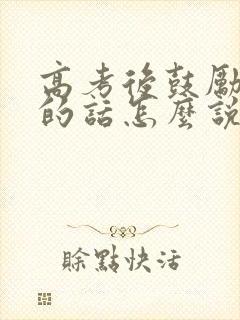 高考後鼓勵
的話怎麼說
賒點快活